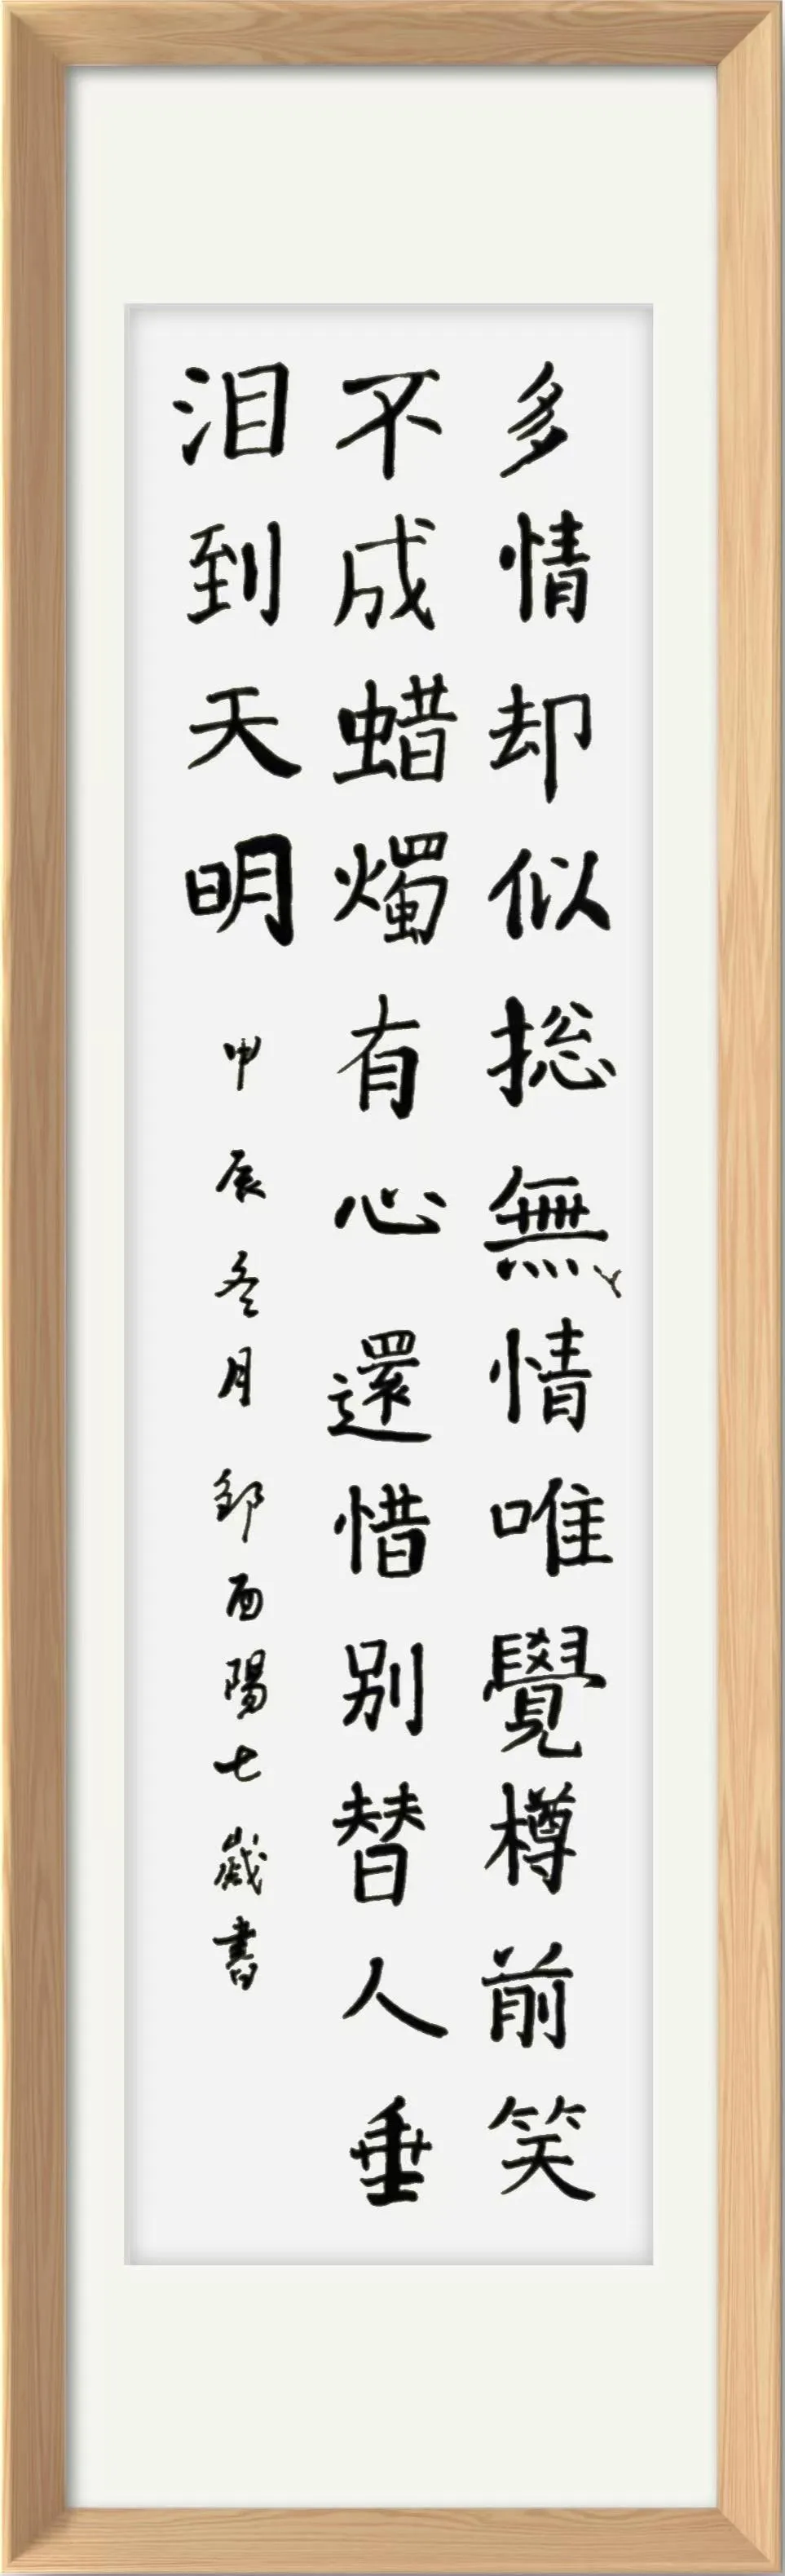 多情却似捴無情唯覺樽前笑
不成蜡燭有心還惜别替人垂
泪到天明 甲辰冬月 陽七歲書